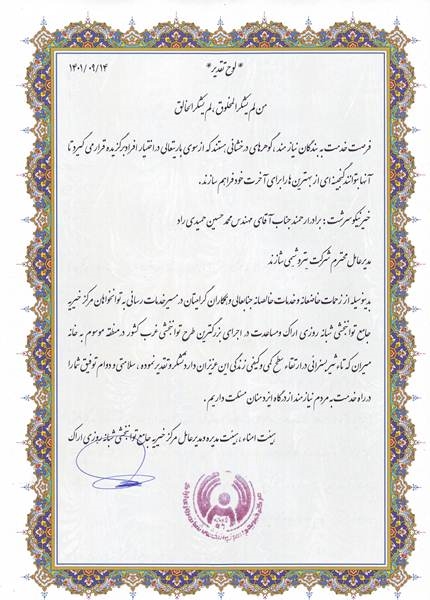 * لوح تقدیر *
۱۴۰۱/۰۹/۱۴
من لم یشکر المخلوق، لم یشکر الخالق
فرصت خدمت به بندگان نیازمند، گوهرهای درخشانی هستند که از سوی باریتعالی در اختیار افراد برگزیده قرار می گیرد تا
آنها بتوانند گنجینه ای از بهترین ها را برای آخرت خود فراهم سازند.
خیر نیکو سرشت : برادر ارجمند جناب آقای مهندس محمد حسین حمیدی راد
مدیر عامل محترم شرکت پتروشیمی شازند
بدینوسیله از زحمات خاضعانه و خدمات خالصانه جنابعالی و همکاران گرامیتان در مسیر خدمات رسانی به توانخواهان مرکز خیریه
جامع توانبخشی شبانه روزی اراک و مساعدت در اجرای بزرگترین طرح توانبخشی غرب کشور در منطقه موسوم به خانه
میران که تاثیر بسزائی در ارتقاء سطح کمی و کیفی زندگی این عزیزان دارد تشکر و تقدیر نموده، سلامتی و دوام توفیق شما را
در راه خدمت به مردم نیازمند از درگاه ایزد منان مسئلت داریم.
هیئت امناء، هیئت مدیره و مدیر عامل مرکز خیریه جامع توانبخشی شبانه روزی اراک